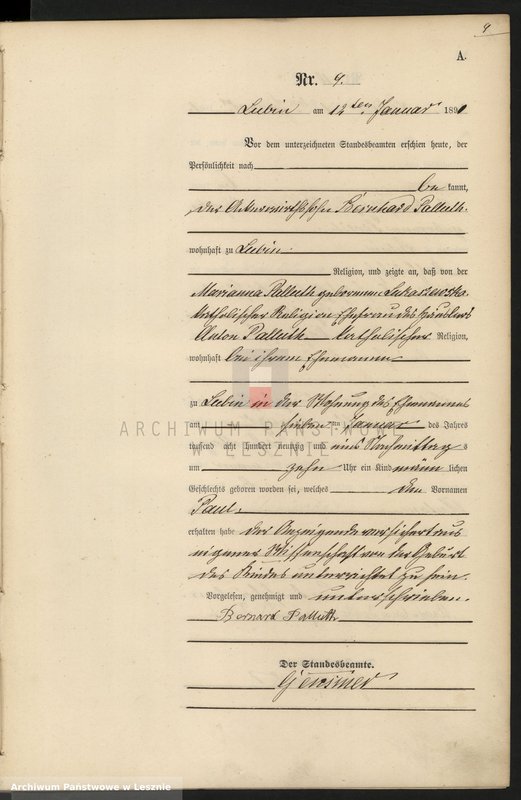 9
A.
Nr. 9.
Lubin am 12ten Januar 1891
Vor dem unterzeichneten Standesbeamten erschien heute, der
Persönlichkeit nach
be kannt,
der Ackerwirthssohn Bernhard Palluth
wohnhaft zu Lubin
Religion, und zeigte an, daß von der
Marianna Palluth geborenen Lukaszewska
katholischer Religion Ehefrau des Häuslers
Anton Palluth katholischer Religion,
wohnhaft bei ihrem Ehemanne
zu Lubin in der Wohnung des Ehemannes
am sieben ten Januar des Jahres
tausend acht hundert neunzig und eins Nachmittag s
um zehn Uhr ein Kind männ lichen
Geschlechts geboren worden sei, welches den Vornamen
Paul
erhalten habe der Anzeigende versichert aus
eigener Wissenschaft von der Geburt
des Kindes unterrichtet zu sein.
Vorgelesen, genehmigt und unterschrieben.
Bernard Palluth
Der Standesbeamte.
ARCHIWUM PAŃSTWOWE
W LESZNIE
Archiwum Państwowe w Lesznie